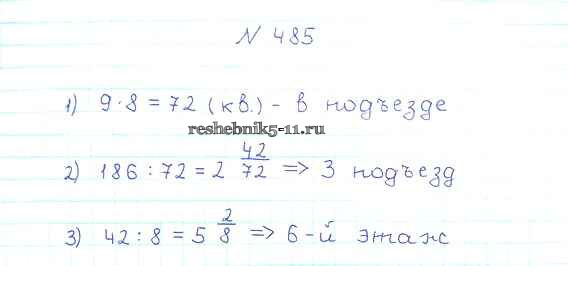 N 485
1) 9 · 8 = 72 (кв.) - в подъезде
reshebnik5-11.ru
2) 186 : 72 = 2 42/72 => 3 подъезд
3) 42 : 8 = 5 2/8 => 6-й этаж